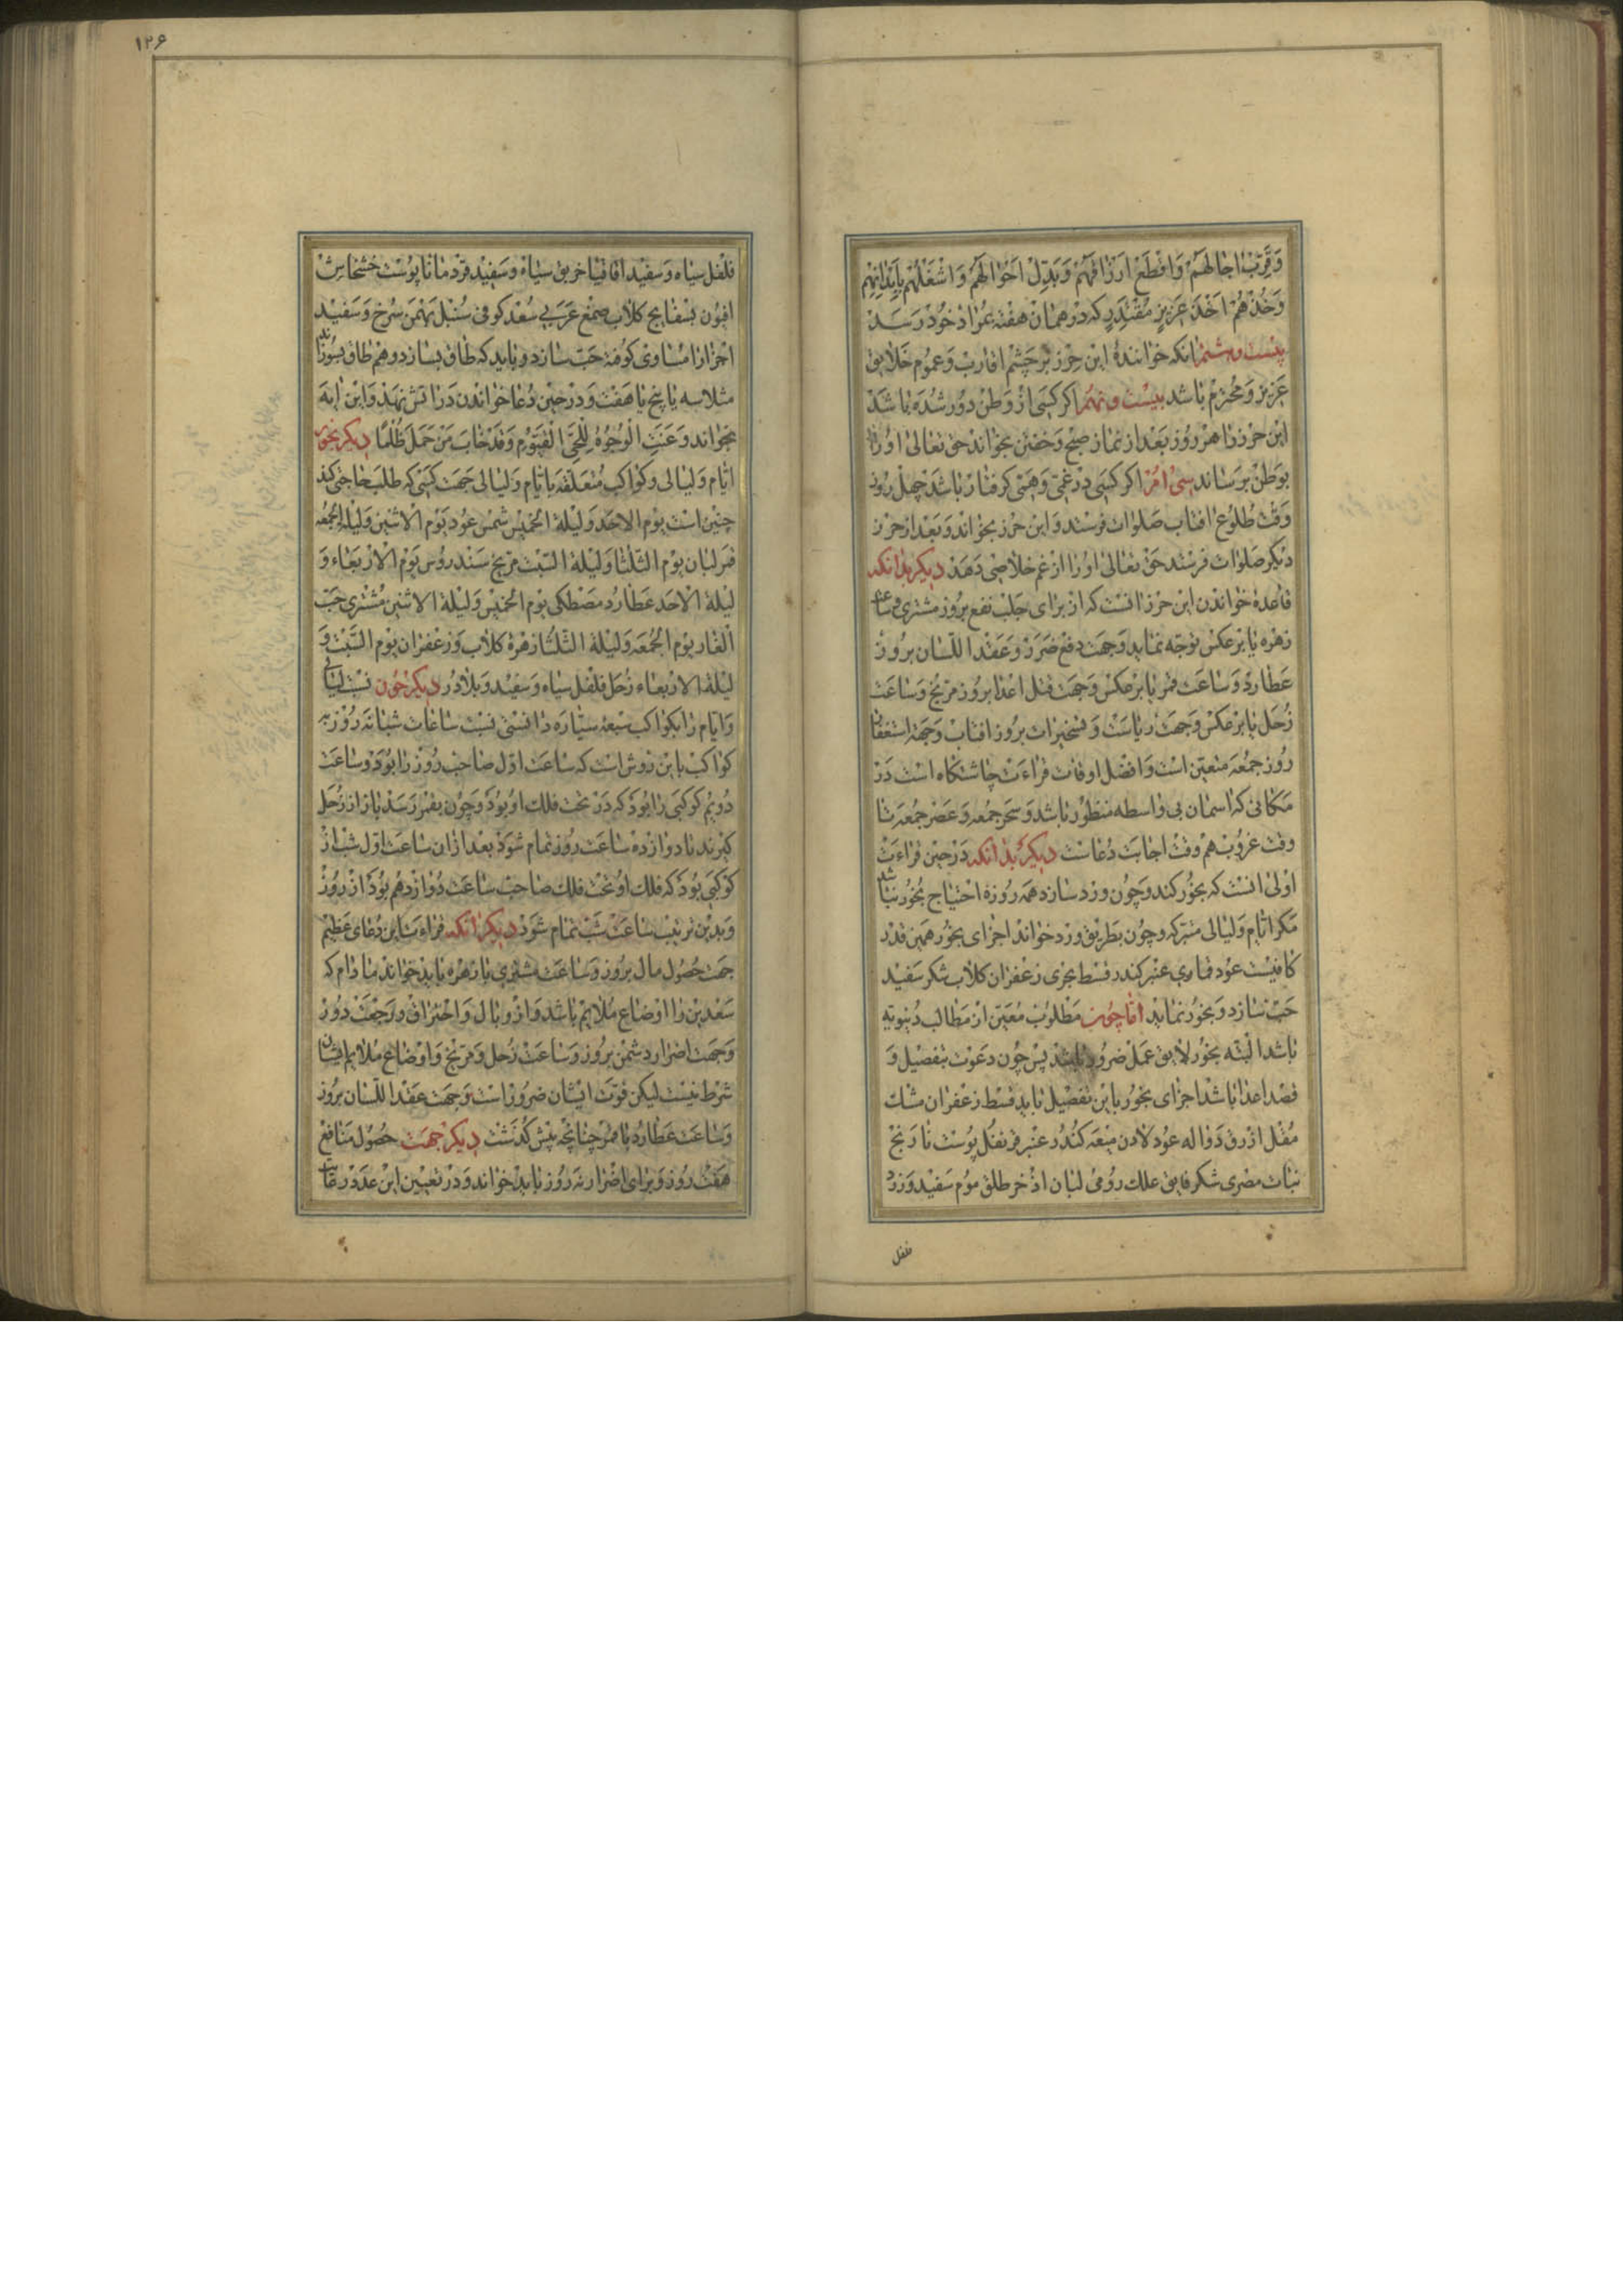 وَقَرِّبْ اٰجالَهُمْ وَاقْطَعْ اَرْزاقَهُمْ وَبَدِّلْ اَحْوالَهُمْ وَاشْغَلْهُمْ بِاَبْدانِهِمْ
وَخُذْهُمْ اَخْذَ عَزيزٍ مُقْتَدِرٍ که در همان هفته بمراد خود رسد
بیست و هشتم انکه خوانندهٔ این حرز بر چشم اقارب و عموم خلایق
عزیز و محترم باشد بیست و نهم اکر کسی از وطن دور شده باشد
این حرز را هر روز بعد از نماز صبح و خفتن بخواند حق تعالی او را
بوطن برساند سی امز اکر کسی در غمی و همی کرفتار باشد چهل روز
وقت طلوع افتاب صلوات فرستد و این حرز بخواند و بعد از حرز
دیکر صلوات فرستد حق تعالی او را از غم خلاصی دهد دیکر بدانکه
قاعدهٔ خواندن این حرز انست که از برای جلب نفع بروز مشتری و ساعت
زهره یا بر عکس توجه نماید و جهت دفع ضرر و عقد اللسان بروز
عطارد و ساعت قمر یا بر عکس و جهت قتل اعدا بروز مریخ و ساعت
زحل یا بر عکس و جهت ریاست و تسخیرات بروز افتاب و جهة استغفار
روز جمعه متعین است و افضل اوقات قراءت چاشتکاه است در
مکانی که اسمان بی واسطه منظور باشد و سحر جمعه و عصر جمعه تا
وقت غروب هم وقت اجابت دعاست دیکر بدانکه در حین قراءت
اولی انست که بخور کند و چون ورد سازد همه روزه احتیاج بخور نباشد
مکر ایام و لیالی متبرکه و چون بطریق ورد خواند اجزای بخور همین قدر
کافیست عود قماری عنبر کندر قسط بحری زعفران کلاب شکر سفید
حب سازد و بخور نماید اما چون مطلوب معین از مطالب دنیویه
باشد البته بخور لایق عمل ضرور باشد پس چون دعوت بتفصیل و
قصد اعدا باشد اجزای بخور باین تفصیل باید قسط زعفران مشک
مقل ازرق دواله عود لادن میعه کندر عنبر قرنفل پوست نارنج
نبات مصری شکر فایق علک رومی لبان اذخر طلق موم سفید و زرد
فلفل
۱۲۶
فلفل سیاه و سفید اقاقیا خربق سیاه و سفید قردمانا پوست خشخاش
افیون بسفایج کلاب صمغ عربی سعد کوفی سنبل بهمن سرخ و سفید
اجزا را مساوی کوفته حب سازد و باید که طاق بسازد و هم طاق بسوزاند
مثلا سه یا پنج یا هفت و در حین دعا خواندن در اتش نهد و این ایه
بخواند وَعَنَتِ الْوُجُوهُ لِلْحَيِّ الْقَيُّومِ وَقَدْ خابَ مَنْ حَمَلَ ظُلْمًا دیکر بخور
ایام و لیالی و کواکب متعلقه بایام و لیالی جهت کسی که طلب حاجتی کند
چنین است یوم الاحد و لیلة الخمیس شمس عود یوم الاثنین و لیلة الجمعه
قمر لبان یوم الثلثا و لیلة السبت مریخ سندروس یوم الاربعاء و
لیلة الاحد عطارد مصطکی یوم الخمیس و لیلة الاثنین مشتری حب
الغار یوم الجمعه و لیلة الثلثا زهرة کلاب و زعفران یوم السبت و
لیلة الاربعاء زحل فلفل سیاه و سفید و بلادر دیکر چون نسبت لیالی
و ایام را بکواکب سبعه سیاره دانستی نسبت ساعات شبانه روز به
کواکب باین روش است که ساعت اول صاحب روز را بود و ساعت
دویم کوکبی را بود که در تحت فلک او بود و چون بقمر رسد باز از زحل
کیرند تا دوازده ساعت روز تمام شود بعد از ان ساعت اول شب از
کوکبی بود که فلک او تحت فلک صاحب ساعت دوازدهم بود از روز
و بدین ترتیب ساعت شب تمام شود دیکر انکه قراءت این دعای عظیم
جهت حصول مال بروز و ساعت مشتری یا زهره باید خواند مادام که
سعدین را اوضاع ملایم باشد و از وبال و احتراق و رجعت دور
و جهت اضرار دشمن بروز و ساعت زحل و مریخ و اوضاع ملایم ایشان
شرط نیست لیکن قوت ایشان ضرور است و جهت عقد اللسان بروز
و ساعت عطارد یا قمر چنانچه پیش کذشت دیکر جهت حصول منافع
هفت روز و برای اضرار نه روز باید خواند و در تعیین این عدد رعایت